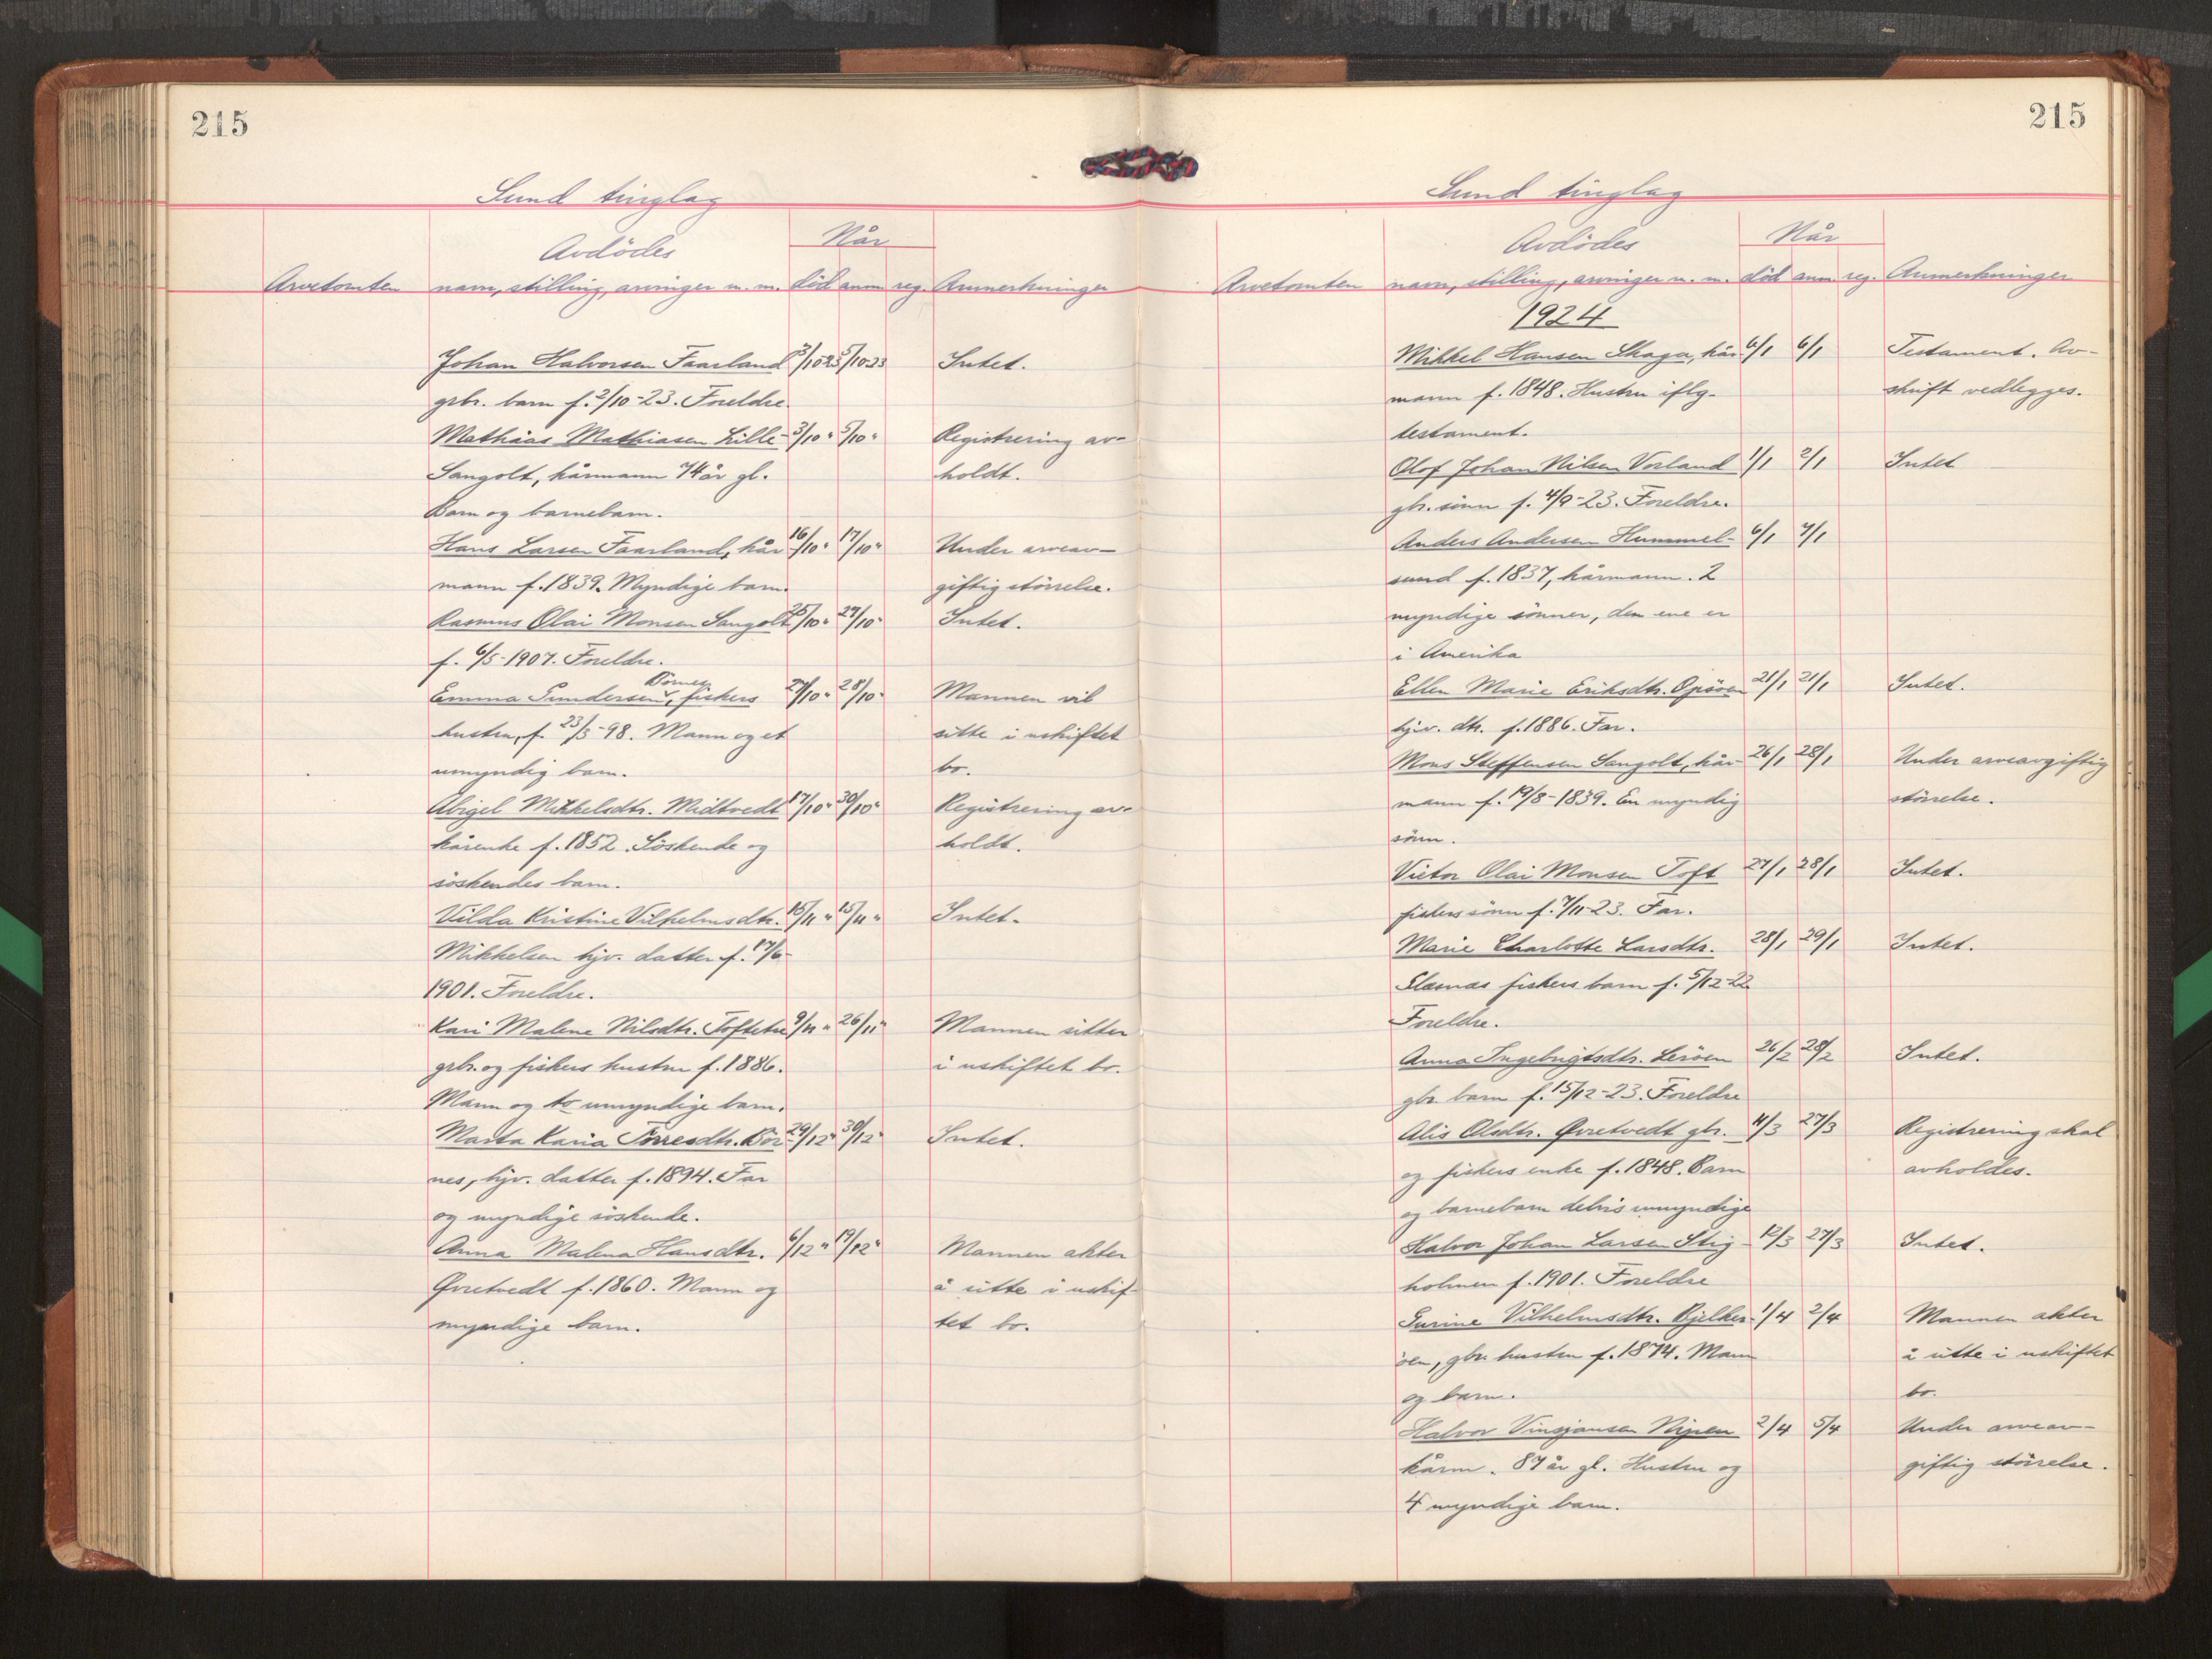 215
Sund tinglag
Avdödes
Når
Arvetomten navn, stilling, arvinger m. m. död anm reg. Anmerkninger
Johan Halvorsen Faarland 3/10-23 5/10-23 Intet.
grbr. barn f. 2/10-23. Foreldre.
Mathias Mathiasen Lille- 3/10 " 5/10 " Registrering av-
Sangolt, kårmann 74 år gl. holdt.
Barn og barnebarn.
Hans Larsen Faarland, kår- 16/10 " 17/10 " Under arveav-
mann f. 1839. Myndige barn. giftig störrelse.
Rasmus Olai Monsen Sangolt 25/10 " 27/10 " Intet.
f. 6/5-1907. Foreldre.
Börnes
Emma Gundersen, fiskers 27/10 " 28/10 " Mannen vil
hustru, f. 23/3-98. Mann og et sitte i uskiftet
umyndig barn. bo.
Abigel Mikkelsdtr. Midtvedt 17/10 " 30/10 " Registrering av-
kårenke f. 1852. Söskende og holdt.
söskendes barn.
Vilda Kristine Vilhelmsdtr. 15/11 " 15/11 " Intet.
Mikkelsen hjv. datter f. 17/6-
1901. Foreldre.
Kari Malene Nilsdtr. Toftetre 9/11 " 26/11 " Mannen sitter
grbr. og fiskers hustru f. 1886. i uskiftet bo.
Mann og to umyndige barn.
Marta Karia Torresdtr. Bör- 29/12 " 30/12 " Intet.
nes, hjv. datter f. 1894. Far
og myndige söskende.
Anna Malena Hansdtr. 6/12 " 19/12 " Mannen akter
Øvretvedt f. 1860. Mann og å sitte i uskif-
myndige barn. tet bo.
215
Sund tinglag
Avdödes
Når
Arvetomten navn, stilling, arvinger m. m. död anm. reg. Anmerkninger
1924
Mikkel Hansen Skaga, kår- 6/1 6/1 Testament. Av-
mann f. 1848. Hustru iflg. skrift vedlegges.
testament.
Olof Johan Nilsen Vorland 1/1 2/1 Intet
gbr. sönn f. 4/9-23. Foreldre.
Anders Andersen Hummel- 6/1 7/1
sund f. 1837, kårmann. 2
myndige sönner, den ene er
i Amerika
Ellen Marie Eriksdtr. Opsöen 21/1 21/1 Intet.
hjv. dtr. f. 1886. Far.
Mons Steffensen Sangolt, kår- 26/1 28/1 Under arveavgiftig
mann f. 19/8-1839. En myndig störrelse.
sönn.
Victor Olai Monsen Toft 27/1 28/1 Intet.
fiskers sönn f. 7/11-23. Far.
Marie Charlotte Larsdtr. 28/1 29/1 Intet.
Glesnes fiskers barn f. 5/12-22
Foreldre.
Anna Ingebrigtsdtr. Leröen 26/2 28/2 Intet.
gbr. barn f. 15/12-23. Foreldre
Alis Olsdtr. Øvretvedt gbr. 11/3 27/3 Registrering skal
og fiskers enke f. 1848. Barn avholdes.
og barnebarn delvis umyndige
Halvor Johan Larsen Stig- 12/3 27/3 Intet.
holmen f. 1901. Foreldre
Gurine Vilhelmsdtr. Bjelker- 1/4 2/4 Mannen akter
öen, gbr. hustru f. 1874. Mann å sitte i uskiftet
og barn. bo.
Halvor Vinsjansen Nipen 2/4 5/4 Under arveav-
kårm. 87 år gl. Hustru og giftig störrelse.
4 myndige barn.